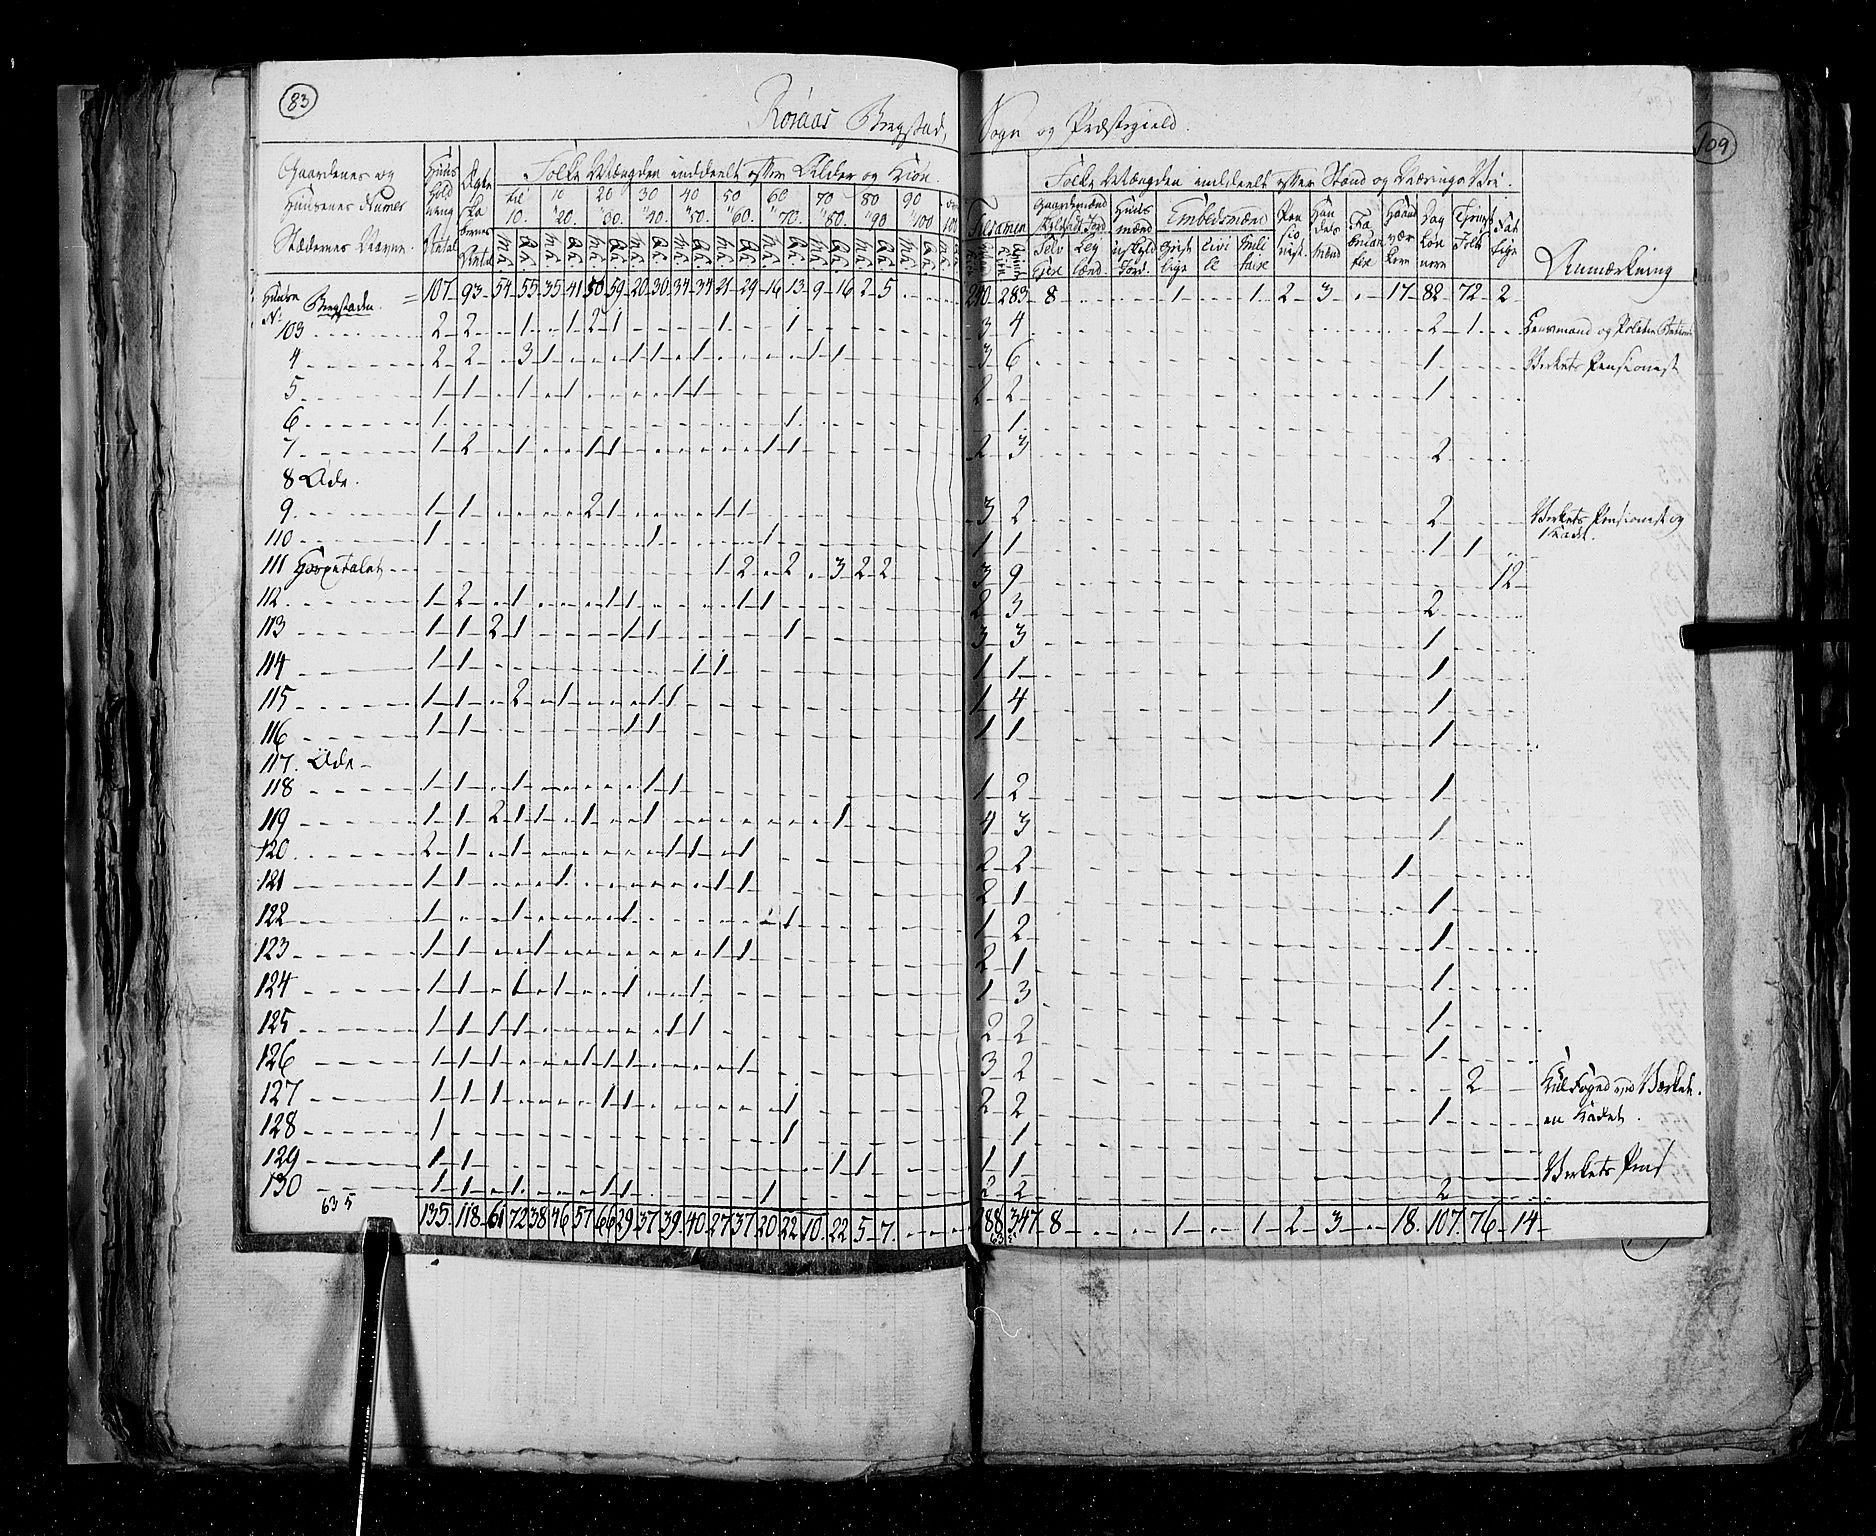 83
109
Røraas Bergstad, Sogn og Præstegield.
Gaardenes og
Huusenes Numer
Stædernes Navne.
Huus
hold
Antal
Ægte
Antal
Folke Mængden inddeelt efter Alder og Kiøn.
til 10. 10 " 20. 20 " 30. 30 " 40. 40 " 50. 50 " 60. 60 " 70. 70 " 80. 80 " 90 90 " 100
Tilsamen
Folke Mængden inddeelt efter Stand og Nærings Vei.
Gaardmænd
Selv Eiere
Ley lænd.
Huus mænd
Jord.
Embedsmænd
Geist lige
Civi le
Mili taire
Pen sio nist.
Han dels mænd
Haand vær kere
Dag løn nere
Tieneste Folk
Fat tige
Anmærkning
Huuse No. Bergstaden = 107 93 54 55 35 41 50 59 20 30 34 34 21 29 16 13 9 16 2 5 240 283 8 1 1 2 3 17 82 72 2
103 2 2 1 1 2 1 1 1 3 4 2 1 Lensmand og Politie Betient
4 2 2 3 1 1 1 1 1 1 3 6 1 Verkets Pensionist
5 1 1 1 1 1 1 2 2 1
6 1 1 1
7 1 2 1 1 1 1 1 2 3 2
8 Øde.
9 1 1 2 1 1 1 3 2 2 Verkets Pensionist og
110 1 1 1 1 1 1 1
111 Hospitalet 1 2 2 3 2 2 3 9 12
112 1 2 1 1 1 1 1 2 3 2
113 1 1 2 1 1 1 1 3 3 1
114 1 1 1 1 1 1 1
115 1 1 2 1 1 1 1 4 1
116 1 1 1 1 1 1 1
117. Øde
118 1 1 1 1 1 1 2 1
119 1 1 2 1 1 1 1 1 4 3 1
120 2 1 1 1 1 1 2 2 1
121 1 1 1 1 1 2 1 1
122 1 1 1 1 1 2 1
123 1 1 1 1 1 2 1 1
124 1 1 1 1 1 1 1 3 1
125 1 1 1 1 1 1 2 2 1
126 1 1 1 1 1 1 1 3 2 2 Kulfoged ved Værket.
127 1 1 1 1 1 1 2 2 1 en Kadet.
128 1 1 1
129 1 1 1 1 1 1 Verkets Pens
130 1 1 1 1 1 1 1 2 2 2
635
135 118 61 72 38 46 57 66 29 37 39 40 27 37 20 22 10 22 5 7 288 347 8 1 1 2 3 18 107 76 14